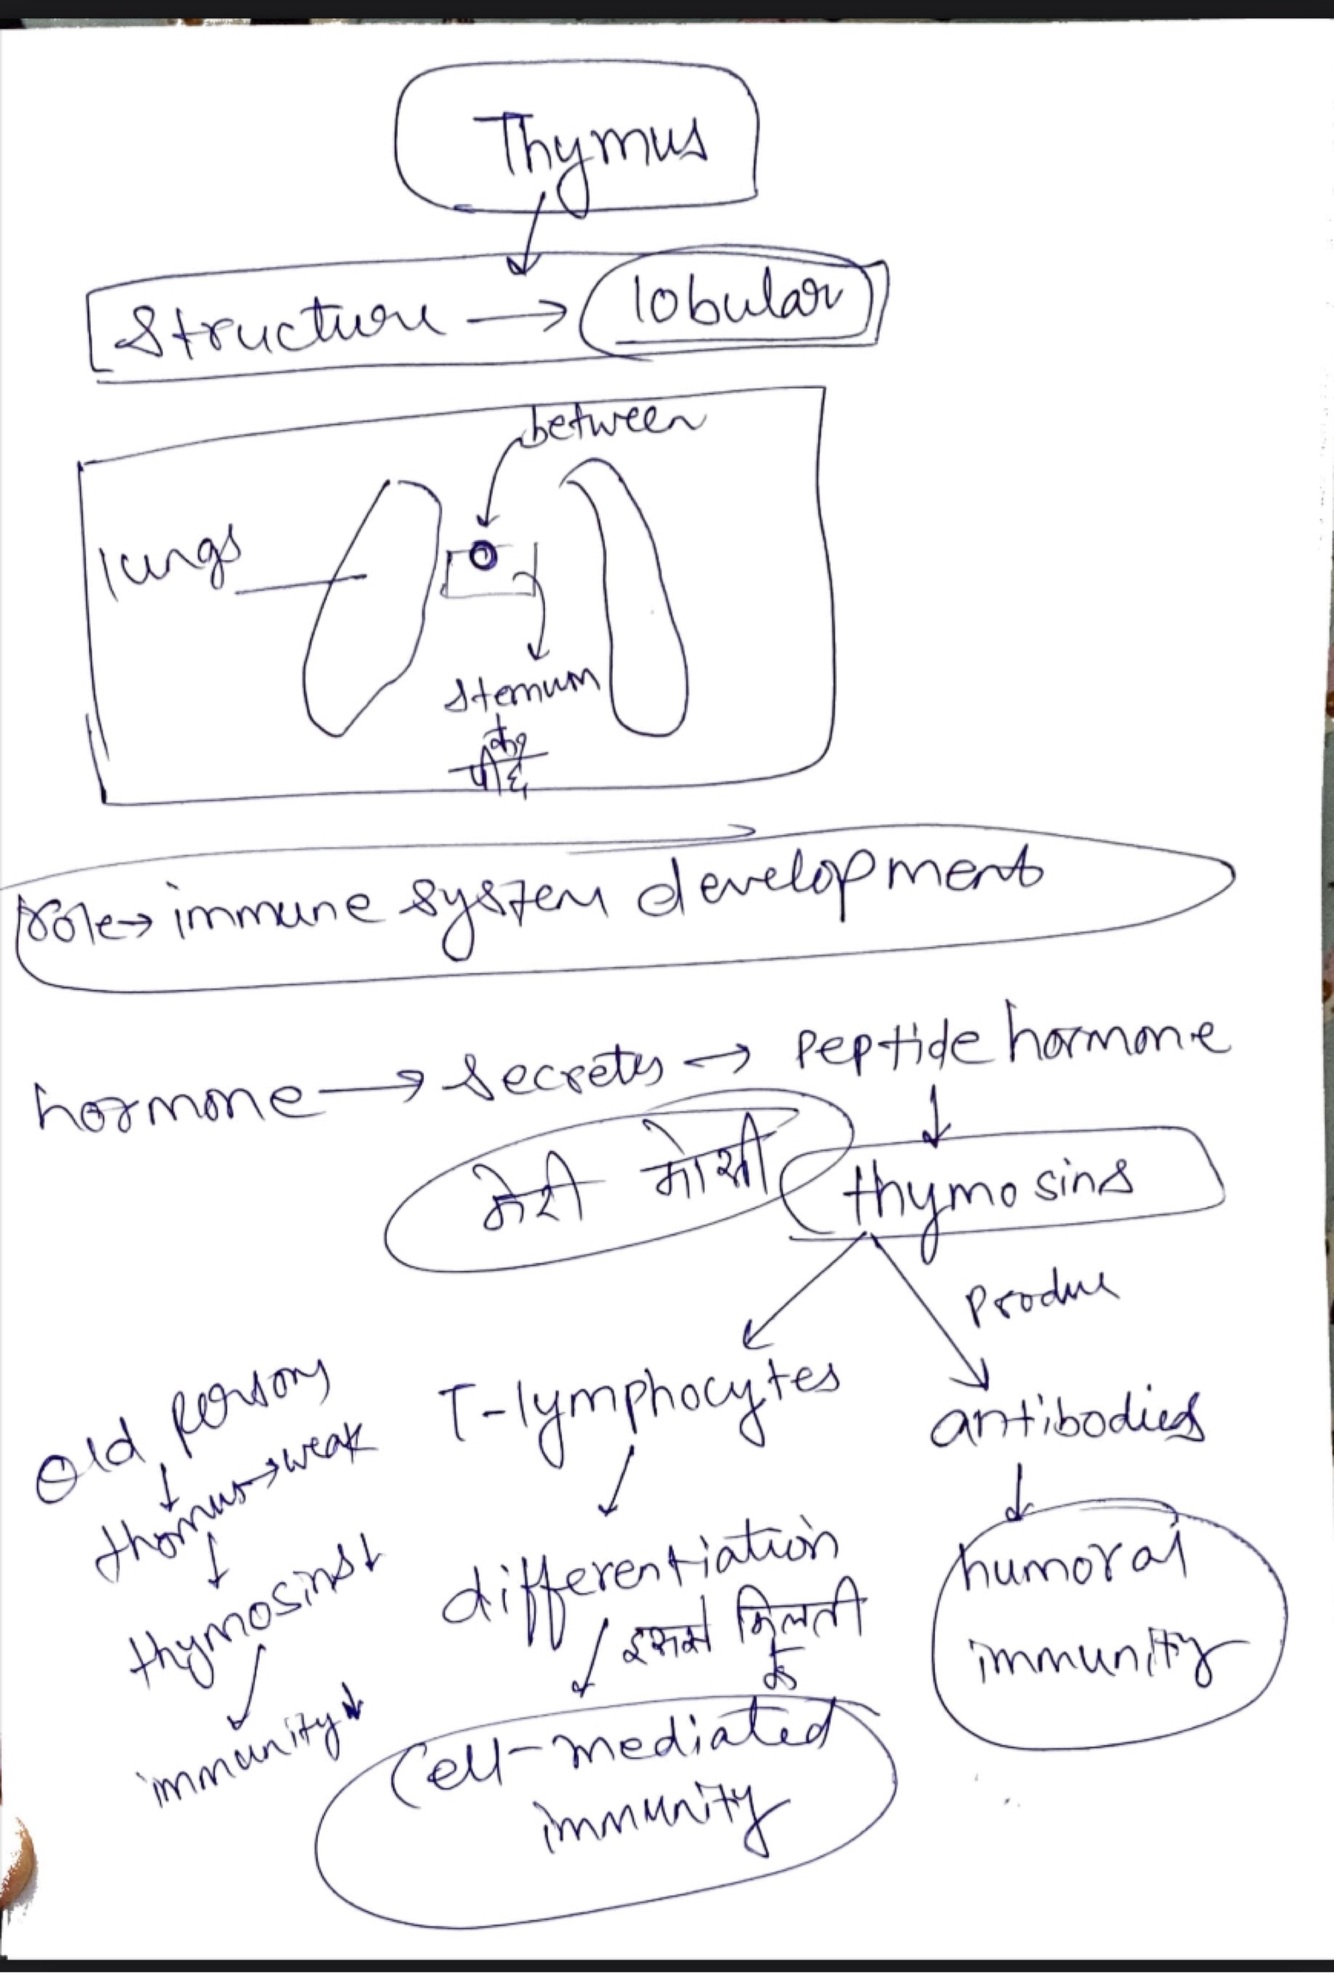 Thymus
Structure → lobular
between
lungs
sternum
के
पीछे
role → immune system development
hormone → secretes → peptide hormone
मेरी मौसी
thymosins
Produce
Old persons
T-lymphocytes
antibodies
thymus → weak
thymosins↓
differentiation
humoral
immunity
इससे मिलती
है
immunity↓
Cell-mediated
immunity